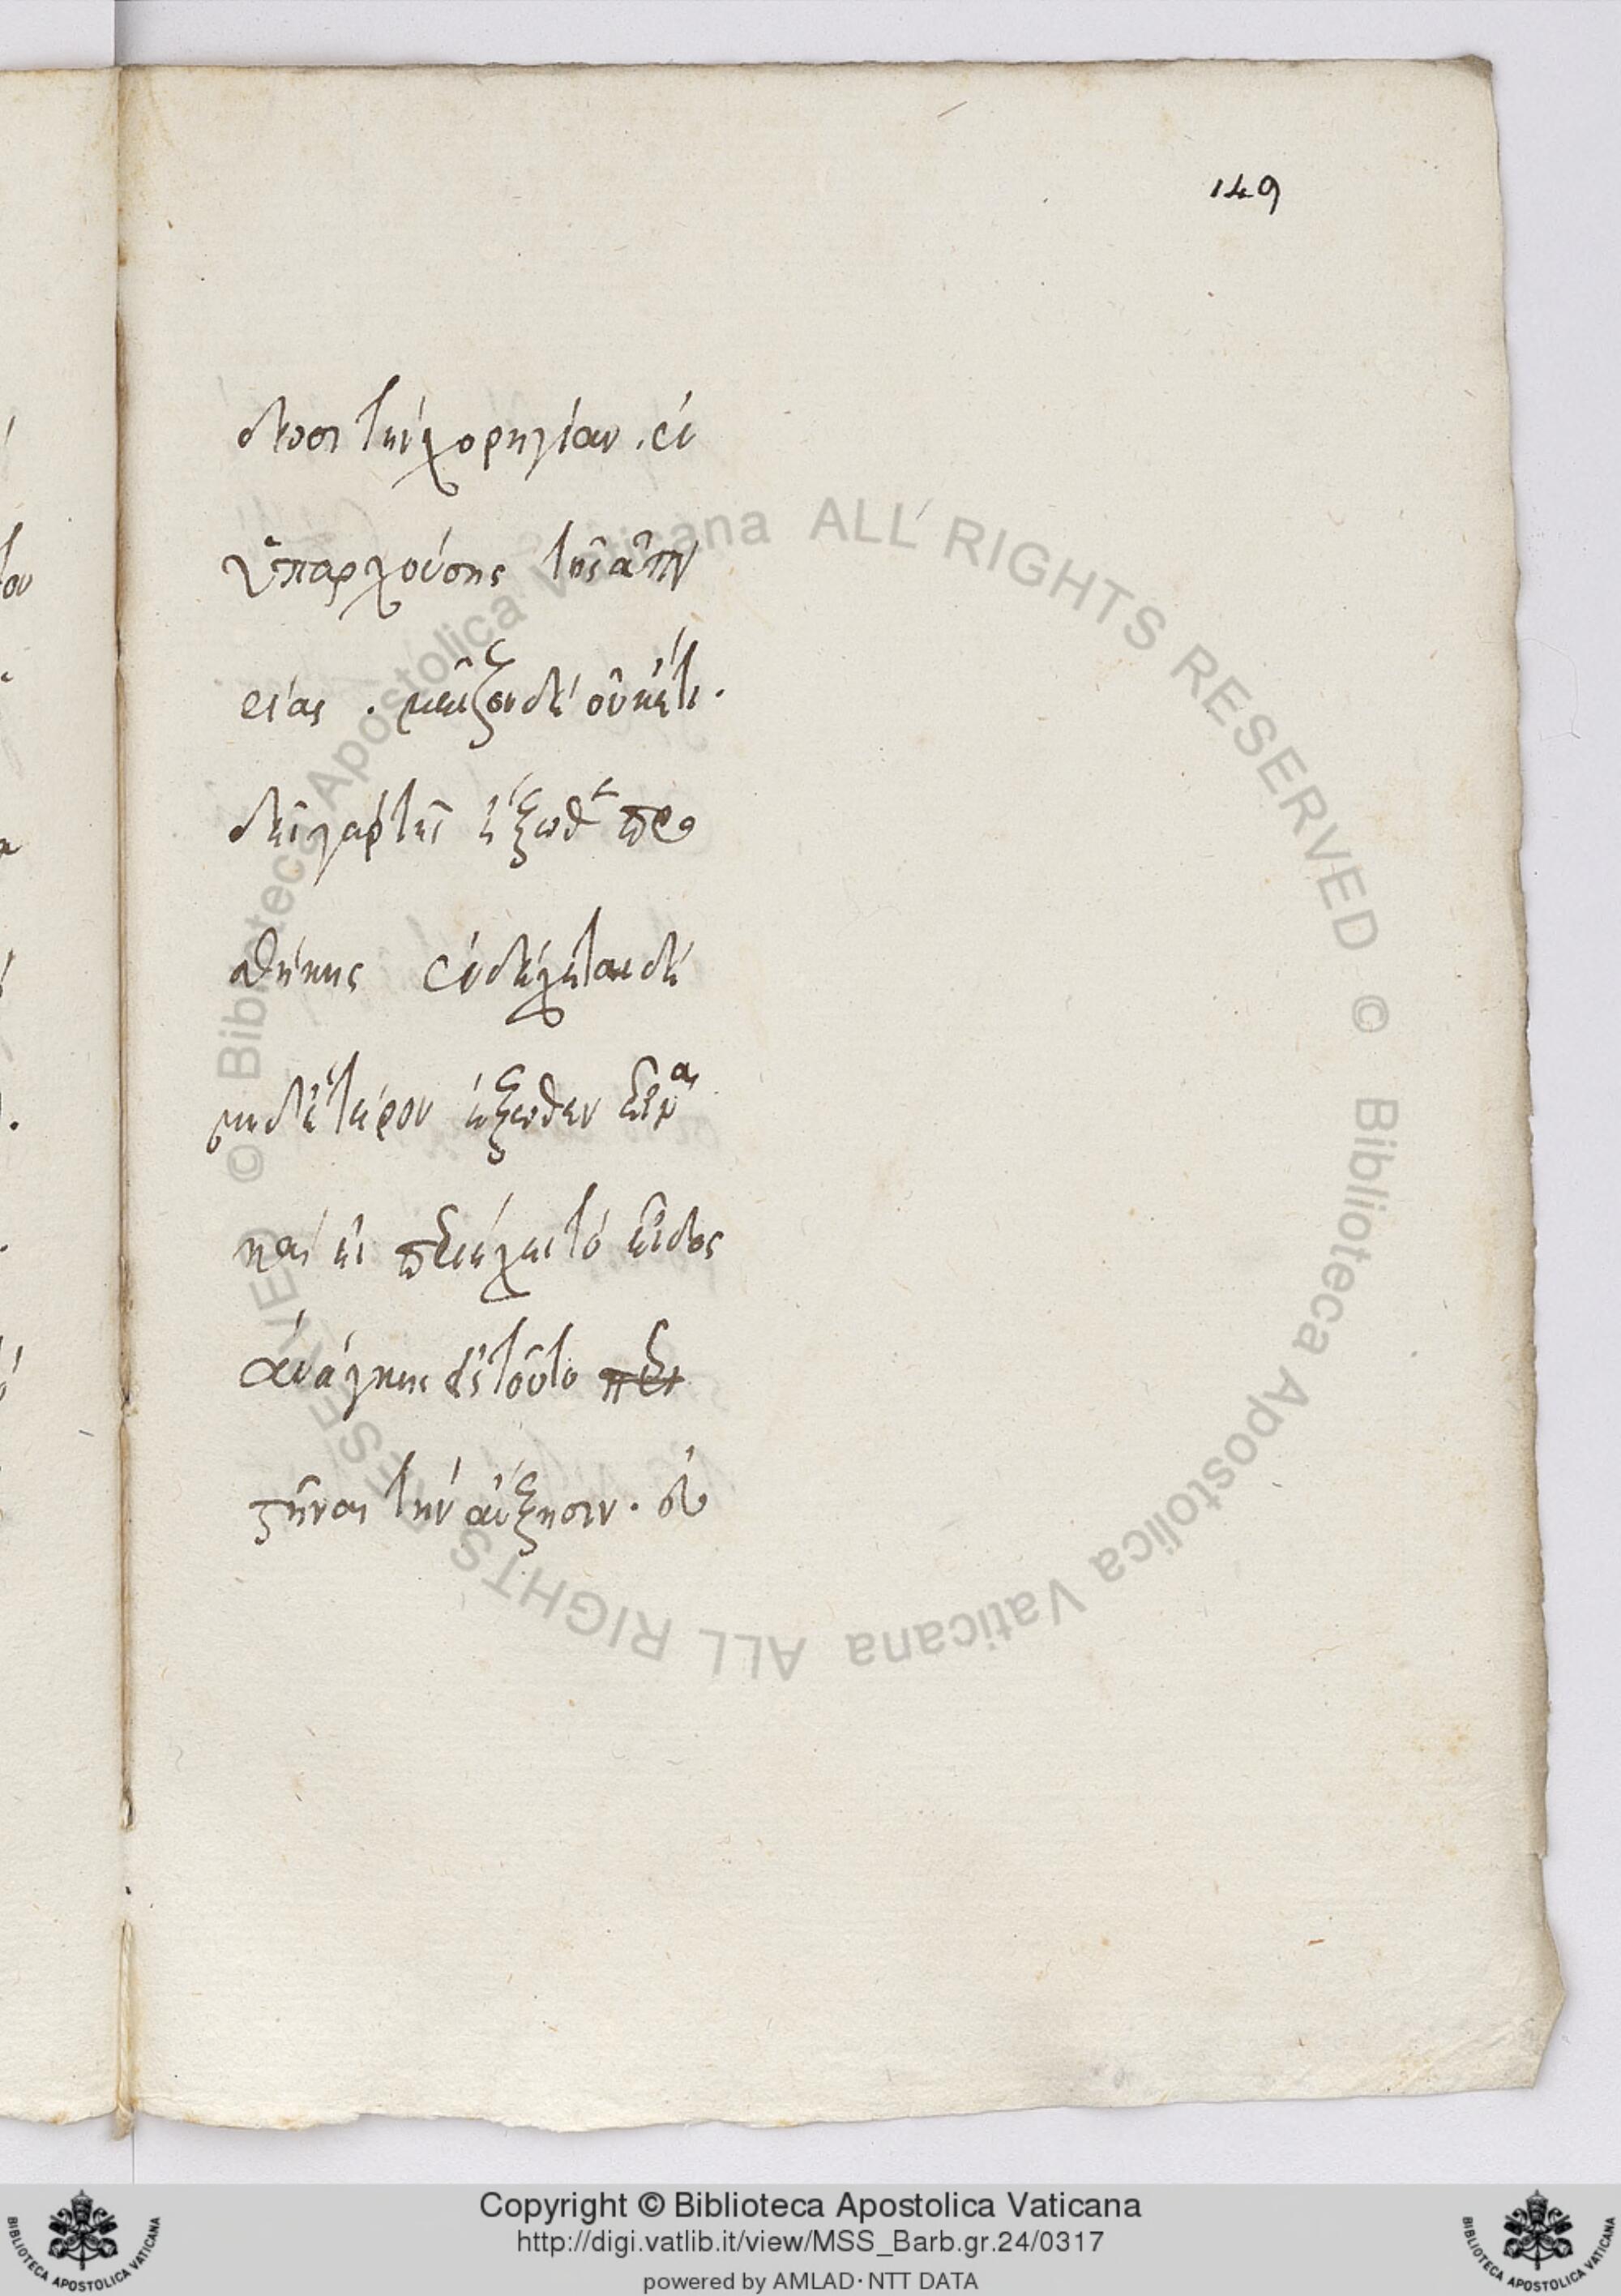 149
δυσι τὴν χορηγίαν. ἐν
ὑπαρχούσης τῆς ἀπει
ρίας. μεῖζον δὲ οὐκέτι.
δεῖ γὰρ τῆς ἔξωθεν προ
σθήκης ἐνδέχεται δὲ
μηδέτερον ἔξωθεν εἶναι
καὶ εἰ περιέχει τὸ εἶδος
ἀνάγκης εἰς τοῦτο περι
στῆναι τὴν αὔξησιν. οὐ
© Biblioteca Apostolica Vaticana ALL RIGHTS RESERVED © Biblioteca Apostolica Vaticana ALL RIGHTS RESERVED
Copyright © Biblioteca Apostolica Vaticana
http://digi.vatlib.it/view/MSS_Barb.gr.24/0317
powered by AMLAD · NTT DATA
BIBLIOTECA APOSTOLICA VATICANA
BIBLIOTECA APOSTOLICA VATICANA